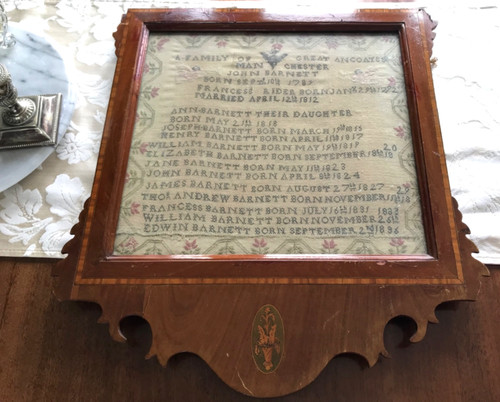 A FAMILY OF GREAT ANCOATS
MAN CHESTER
JOHN BARNETT
BORN 1789
FRANCES RIDER BORN JAN
MARRIED APRIL 12th 1812
ANN BARNETT THEIR DAUGHTER
BORN MAY 2 1813
JOSEPH BARNETT BORN MARCH 19th 1815
HENRY BARNETT BORN APRIL 1817
WILLIAM BARNETT BORN MAY 19th 1819
ELIZABETH BARNETT BORN SEPTEMBER 18 20
JANE BARNETT BORN MAY 1823
JOHN BARNETT BORN APRIL 1824
JAMES BARNETT BORN AUGUST 27th 1827
THOs ANDREW BARNETT BORN NOVEMBER 18
FRANCES BARNETT BORN JULY 16th 1831
WILLIAM BARNETT BORN NOVEMBER 26th 1833
EDWIN BARNETT BORN SEPTEMBER 2nd 1836